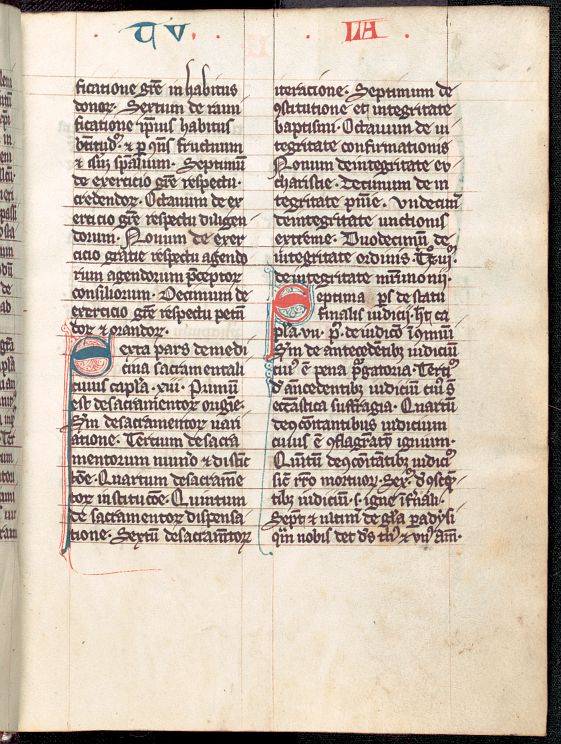 · q v · · IIII ·
ficatione grē in habitus
donoꝝ · Sextum de rami
ficatione ip̄ius habitus
b̄titud᷒ · ⁊ ꝑ q̄ns fructuum
⁊ sēsuū spālium · Septimū
de exercicio grē respectu
credendoꝝ · Octauum de ex
ercicio grē respectu diligen
dorum · Nonum de exer
cicio gratie respectu agendo
rum agendorum p̄ceptoꝝ
consiliorum · Decimum de
exercicio grē respectu petē
doꝝ ⁊ orandoꝝ ·
Sexta pars de medi
cina sacramentali
cuius capl̄a · xiii · Primū
est de sacramentoꝝ origīe ·
Scd̄m de sacramentoꝝ uari
atione · Tertium de sacra
mentorum nūmo ⁊ distinc
tōe · Quartum de sacramē
toꝝ institucōe · Quintum
de sacramentoꝝ dispensa
tione · Sextū de sacram̄toꝝ
iteracione · Septimum de
ꝯstitutione et integritate
baptismi · Octauum de in
tegritate confirmationis
Nonum de integritate eu
charistie · Decimum de in
tegritate pn̄ie · Undecimū
de integritate unctionis
extreme · Duodecimū de
integritate ordinis · Tꝰ xiiꝰ
de integritate matrimonii ·
Septima p̄s de statu
finalis iudicii · h̄t ca
pl̄a · vii · p̄ · de iudicō ī ꝯmuni
Scd̄m de antecedētibꝰ iudicium
ciuiꝰ ē pena p̄gatoria · Tertiꝰ
d̓ ancedentibꝰ iudiciū cuiꝰ s̄
ecc̄astica suffragia · Quartū
de ꝯcōitantibus iudicium
cuius ē ꝯflagratō ignium ·
Quītū de ꝯcōitātibꝰ iudiciū
sic̄ r̄r̄o mortuoꝝ · Sex̄ · d̓ ꝯseq̄n
tibꝰ iudiciū · s · igne īfr̄nali ·
Sept̄ · ⁊ ultimū de gl̄a paradysi
q̄m nobis det dn̄s ih̄c ⁊ vnꝰ am̄ ·